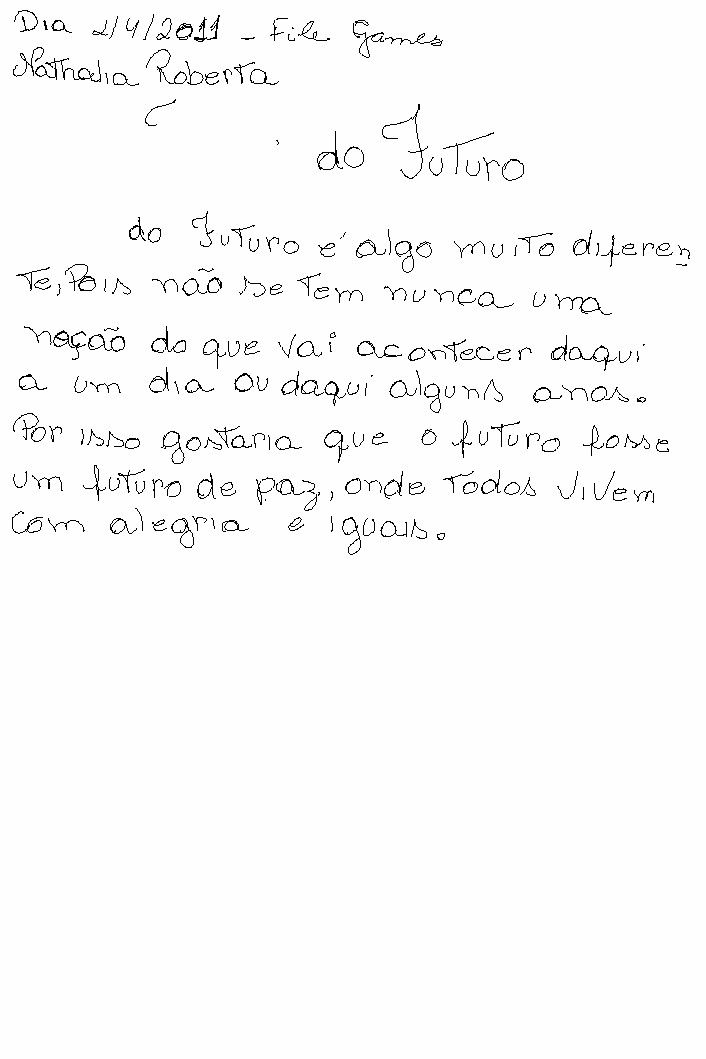 Dia 2/4/2011 - File Games
Nathalia Roberta
do Futuro
do Futuro é algo muito diferen
te, Pois não se tem nunca uma
noção do que vai acontecer daqui
a um dia ou daqui alguns anos.
Por isso gostaria que o futuro fosse
um futuro de paz, onde todos vivem
com alegria e iguais.